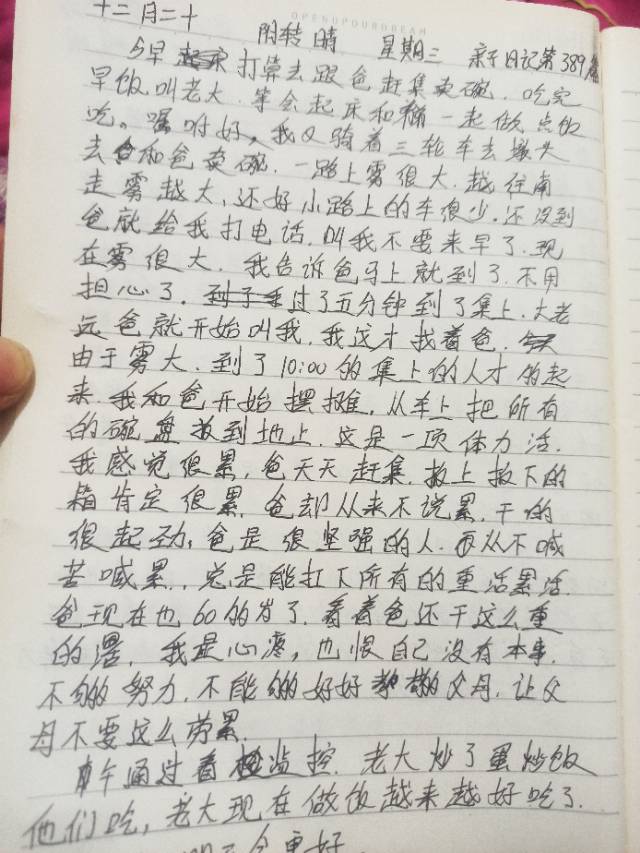 OPENUPOURDREAM
十二月二十 阴转晴 星期三 亲子日记第389篇
今早起床打算去跟爸赶集卖碗，吃完
早饭叫老大，等会起床和 一起做点饭
吃。嘱咐好，我又骑着三轮车去 头
去和爸卖碗，一路上雾很大，越往南
走雾越大，还好小路上的车很少，还没到
爸就给我打电话，叫我不要来早了，现
在雾很大，我告诉爸马上就到了，不用
担心了，过了五分钟到了集上，大老
远爸就开始叫我，我这才找着爸，
由于雾大，到了10:00的集上的人才 起
来，我和爸开始摆摊，从车上把所有
的碗盘放到地上，这是一项体力活，
我感觉很累，爸天天赶集，搬上搬下的
箱肯定很累，爸却从来不说累，干的
很起劲，爸是很坚强的人，从不喊
苦喊累，总是能扛下所有的重活累活，
爸现在也60的岁了，看着爸还干这么重
的活，我是心疼，也恨自己没有本事，
不够努力，不能够好好 父母，让父
母不要这么劳累，
中午通过看监控，老大炒了蛋炒饭
他们吃，老大现在做饭越来越好吃了，